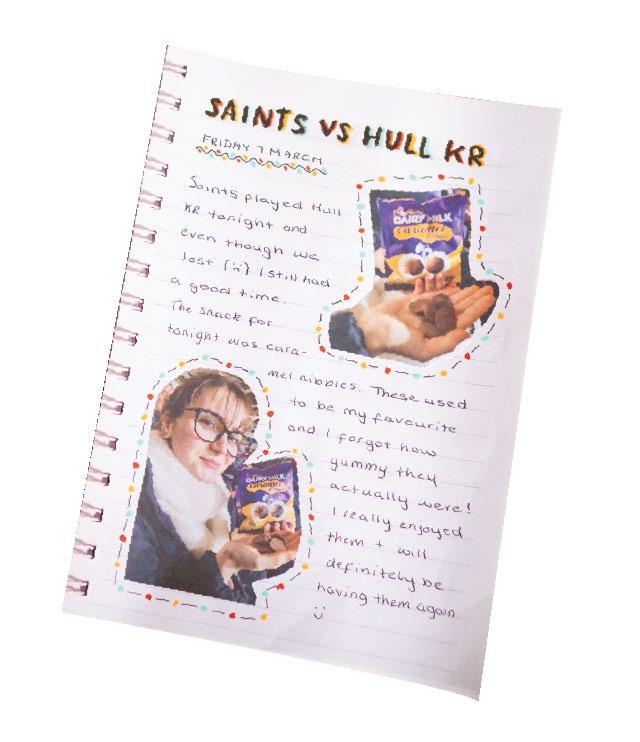 SAINTS VS HULL KR
FRIDAY 7 MARCH
Saints played Hull
KR tonight and
even though we
lost (:() I still had
a good time.
The snack for
tonight was cara-
mel nibbles. These used
to be my favourite
and I forgot how
yummy they
actually were!
I really enjoyed
them + will
definitely be
having them again
:)
DAIRY MILK
Caramel
DAIRY MILK
Caramel